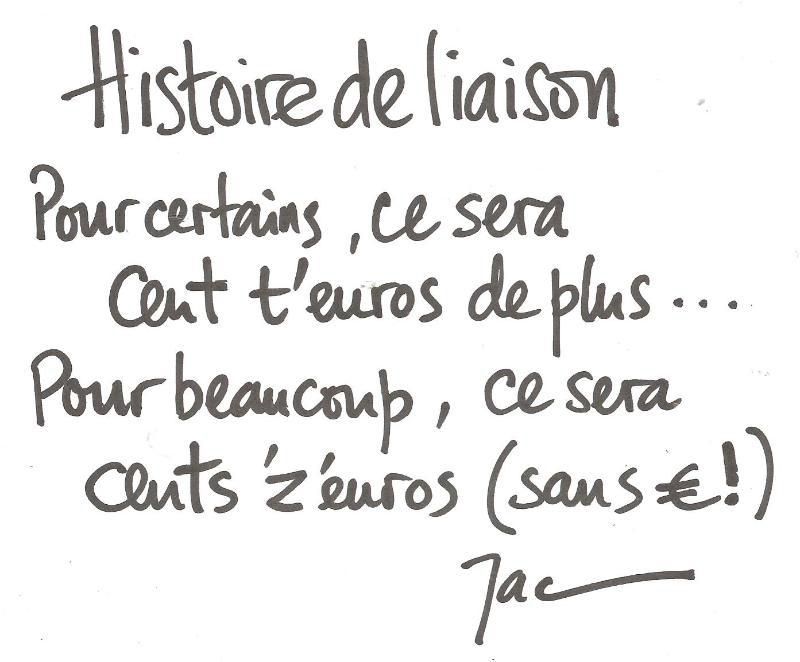 Histoire de liaison
Pour certains, ce sera
Cent t'euros de plus...
Pour beaucoup, ce sera
cents 'z'euros (sans €!)
Jac